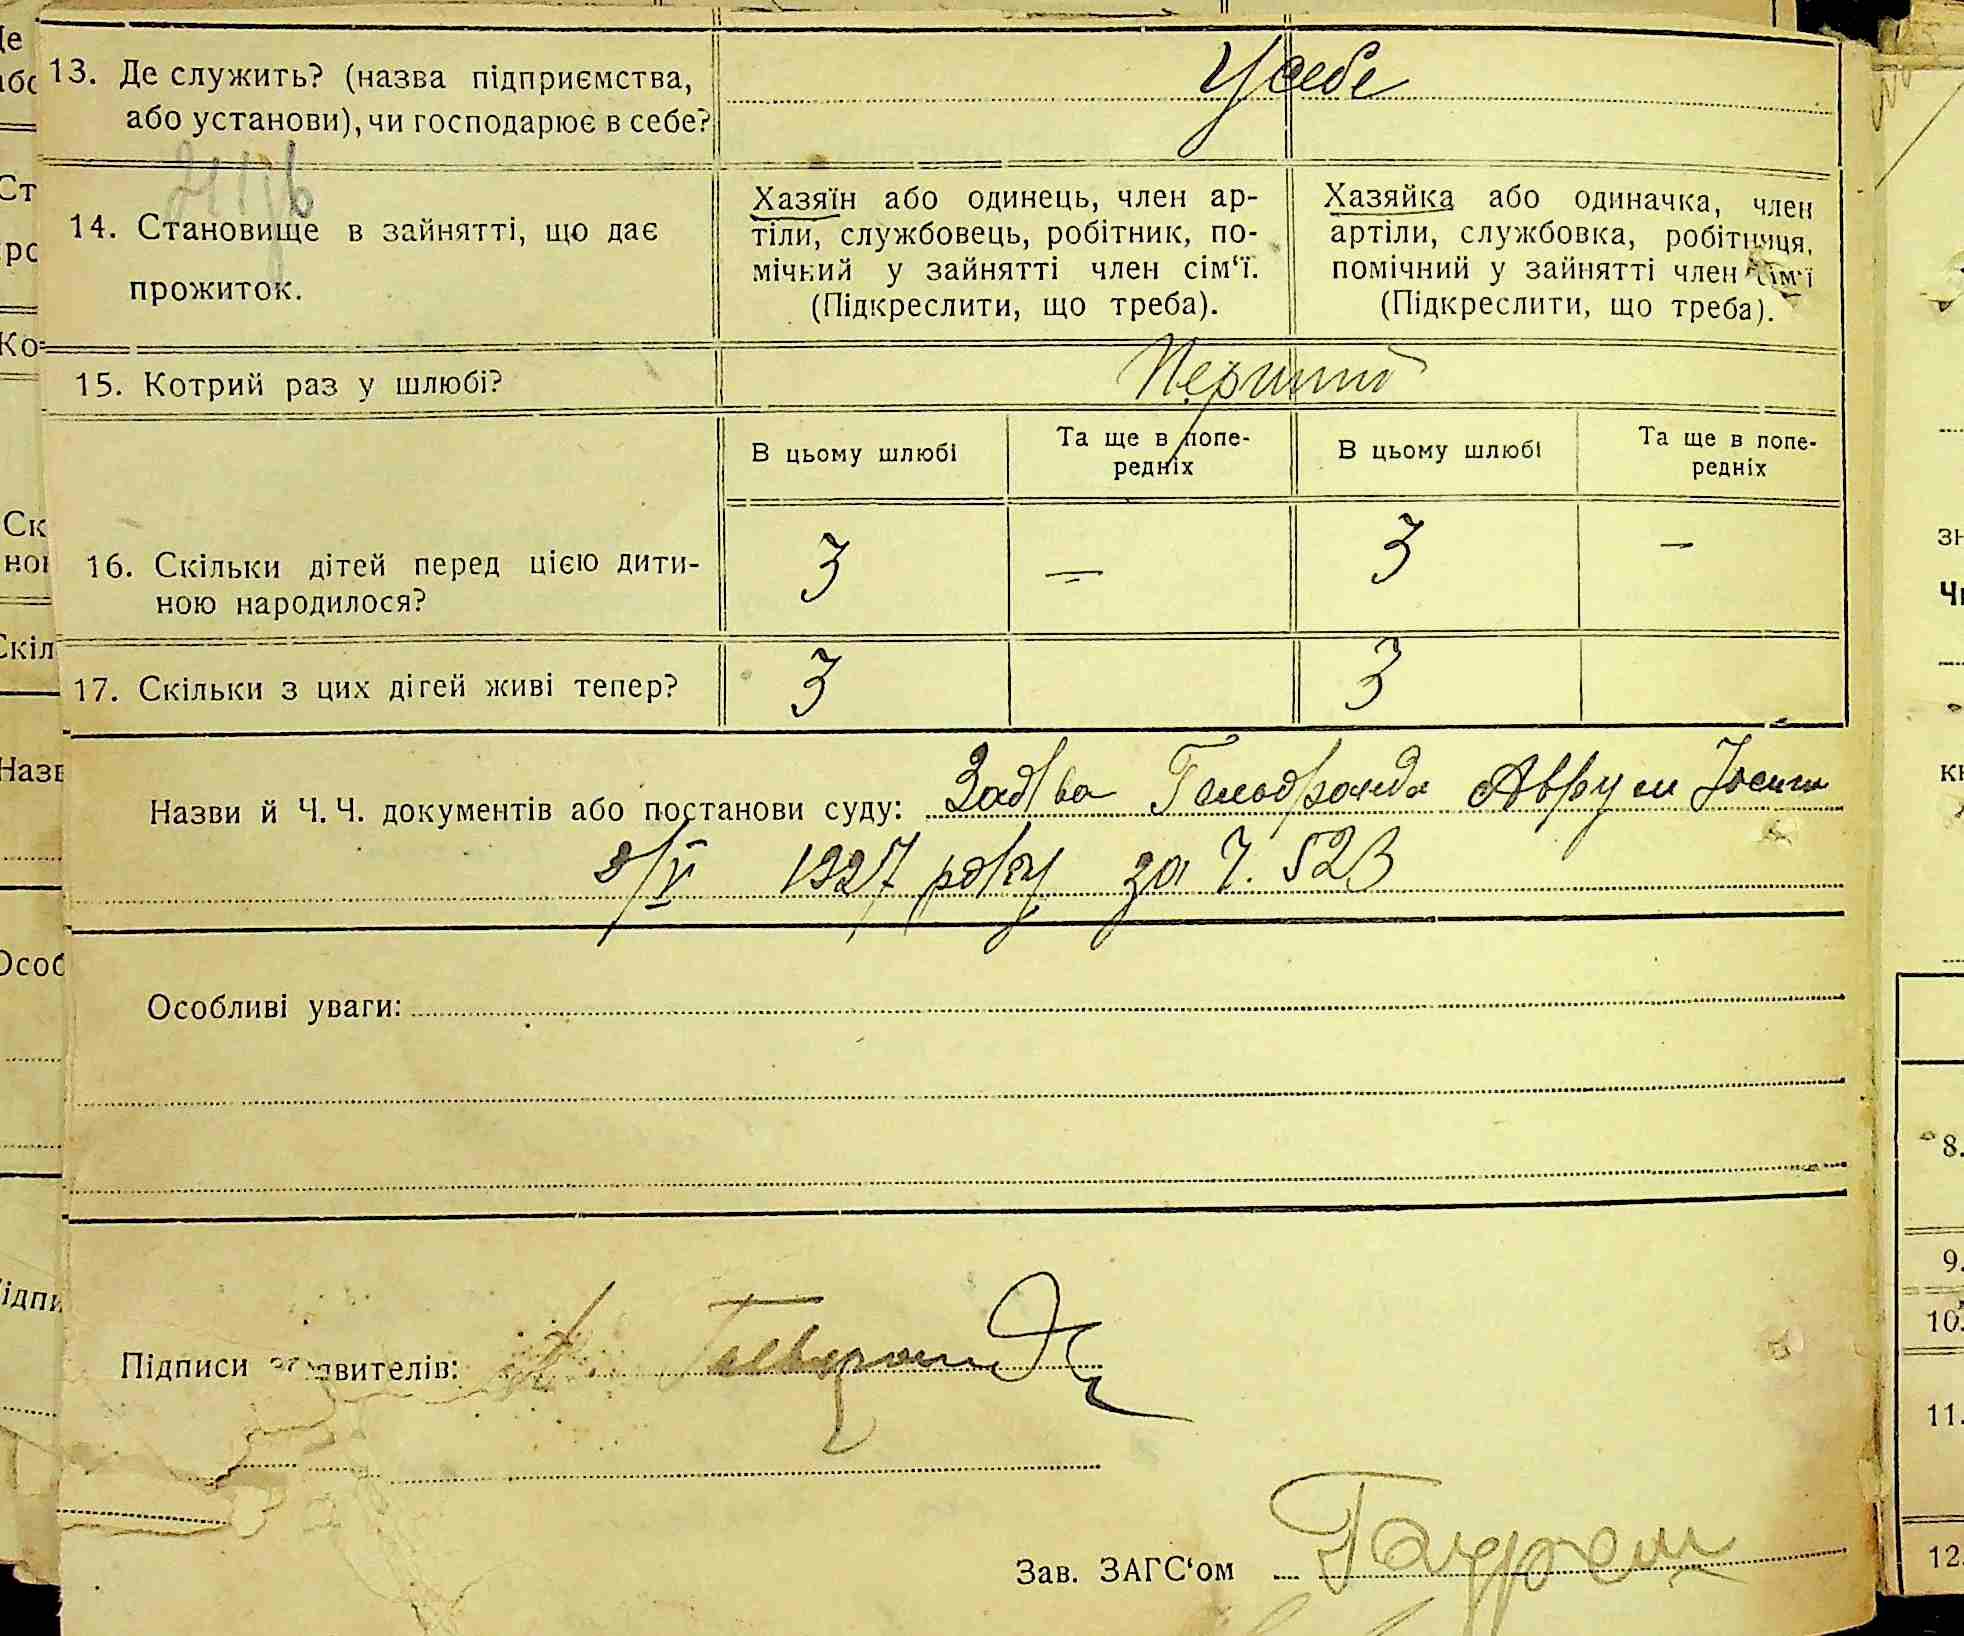 13. Де служить? (назва підприємства,
або установи), чи господарює в себе?
У себе
14. Становище в зайнятті, що дає
прожиток.
Хазяїн або одинець, член ар-
тіли, службовець, робітник, по-
мічний у зайнятті член сім‘ї.
(Підкреслити, що треба).
Хазяйка або одиначка, член
артіли, службовка, робітниця,
помічний у зайнятті член сім‘ї
(Підкреслити, що треба).
15. Котрий раз у шлюбі?
Перший
В цьому шлюбі
Та ще в попе-
редніх
В цьому шлюбі
Та ще в попе-
редніх
16. Скільки дітей перед цією дити-
ною народилося?
3 — 3 —
17. Скільки з цих дітей живі тепер?
3 3
Назви й Ч. Ч. документів або постанови суду: Заява Гельбранда Аврум
1927 року за Ч. 523
Особливі уваги:
Підписи заявителів:
Зав. ЗАГС‘ом
Це
або
Ст
про
Ко
Ск
ною
Скіл
Назв
Особ
Підпи
8.
9.
10.
11.
12.